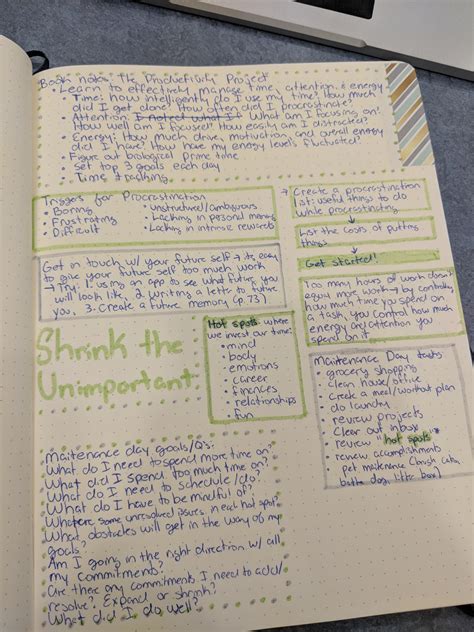 Book notes: The Productivity Project
• Learn to effectively manage time, attention, & energy
• Time: how intelligently do I use my time? How much
did I get done? How often did I procrastinate?
• Attention: What am I focusing on?
How well am I focused? How easily am I distracted?
• Energy: How much drive, motivation, and overall energy
did I have? How have my energy levels fluctuated?
• Figure out biological prime time
• Set top 3 goals each day
• Time tracking
Triggers for Procrastination
• Boring
• Frustrating
• Difficult
• unstructured/ambiguous
• Lacking in personal meaning
• Lacking in intrinsic rewards
→ Create a procrastination
list: useful things to do
while procrastinating
List the costs of putting
things
Get started!
Get in touch w/ your future self → its easy
to give your future self too much work
→ Try: 1. using an app to see what future you
will look like, 2. Writing a letter to future
you, 3. Create a future memory (p.73)
Too many hours of work doesn't
equal more work → by controlling
how much time you spend on
a task, you control how much
energy and attention you
spend on it.
Shrink the
Unimportant
Hot spots: where
we invest our time:
• mind
• body
• emotions
• career
• finances
• relationships
• fun
Maintenance Day tasks:
• grocery shopping
• clean house/office
• create a meal/workout plan
• do laundry
• review projects
• Clear out inbox
• review "hot spots"
• review accomplishments
• pet maitenance (brush cats,
bathe dog, litter box)
Maitenance day goals/Q's:
What do I need to spend more time on?
What did I spend too much time on?
What do I need to schedule/do?
What do I have to be mindful of?
What are some unresolved issues in each hot spot?
What obstacles will get in the way of my
goals?
Am I going in the right direction w/ all
my commitments?
Are there any commitments I need to add/
resolve? Expand or shrink?
What did I do well?